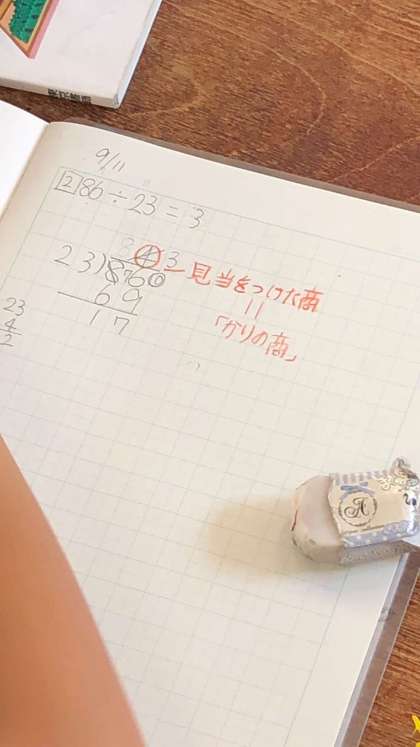 9/11
2 86÷23=3
4 3
23)86
69
17
23
4
2
見当をつけた商
||
「かりの商」
A